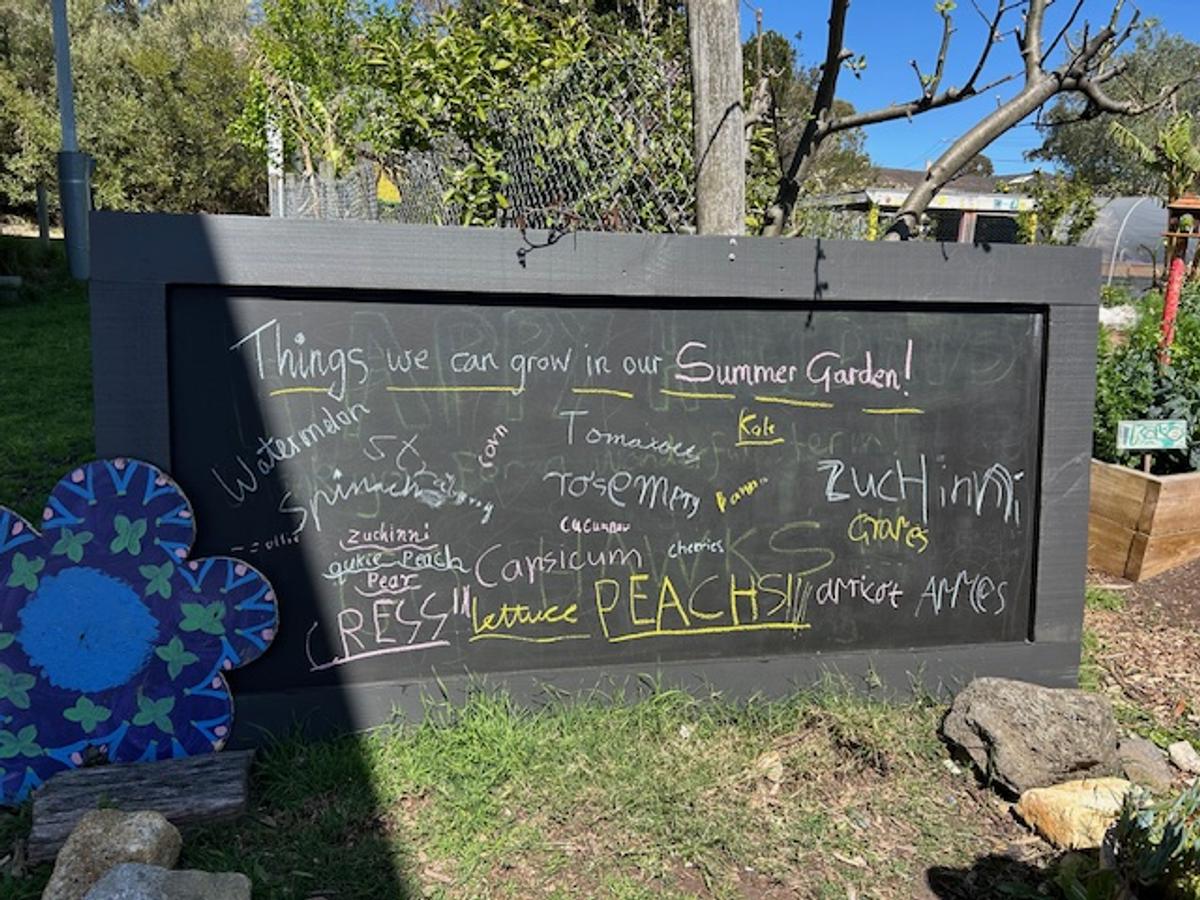 Things we can grow in our Summer Garden!
Watermelon
corn
Tomatoes
Kale
Spinach
rosemary
zuchinni
zuchinni
cucumber
Grapes
Peach
Capsicum
cherries
Pear
CRESS!!!
lettuce
PEACHS!!!
apricot
APPles